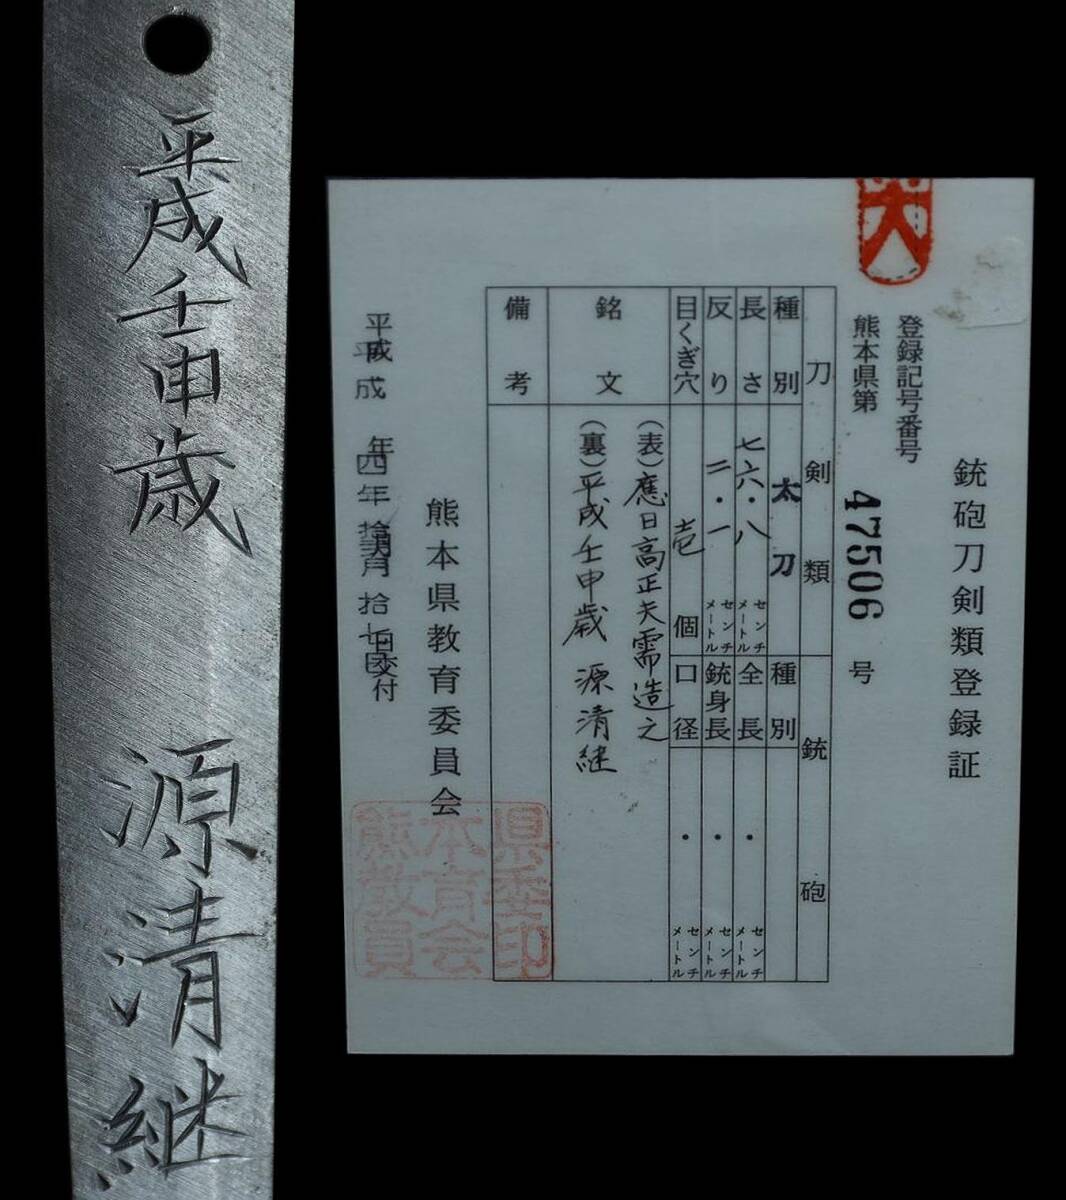 平成壬申歳　源清継
銃砲刀剣類登録証
登録記号番号
熊本県第 47506 号
刀剣類
銃砲
種別 太刀
種別
長さ 七六・八 センチメートル
全長 ・ センチメートル
反り 二・一 センチメートル
銃身長 ・ センチメートル
目くぎ穴 壱 個
口径 ・ センチメートル
銘文
(表)應日高正矢需造之
(裏)平成壬申歳 源清継
備考
熊本県教育委員会
平成四年拾月拾七日交付
県委印
本育会
熊教員